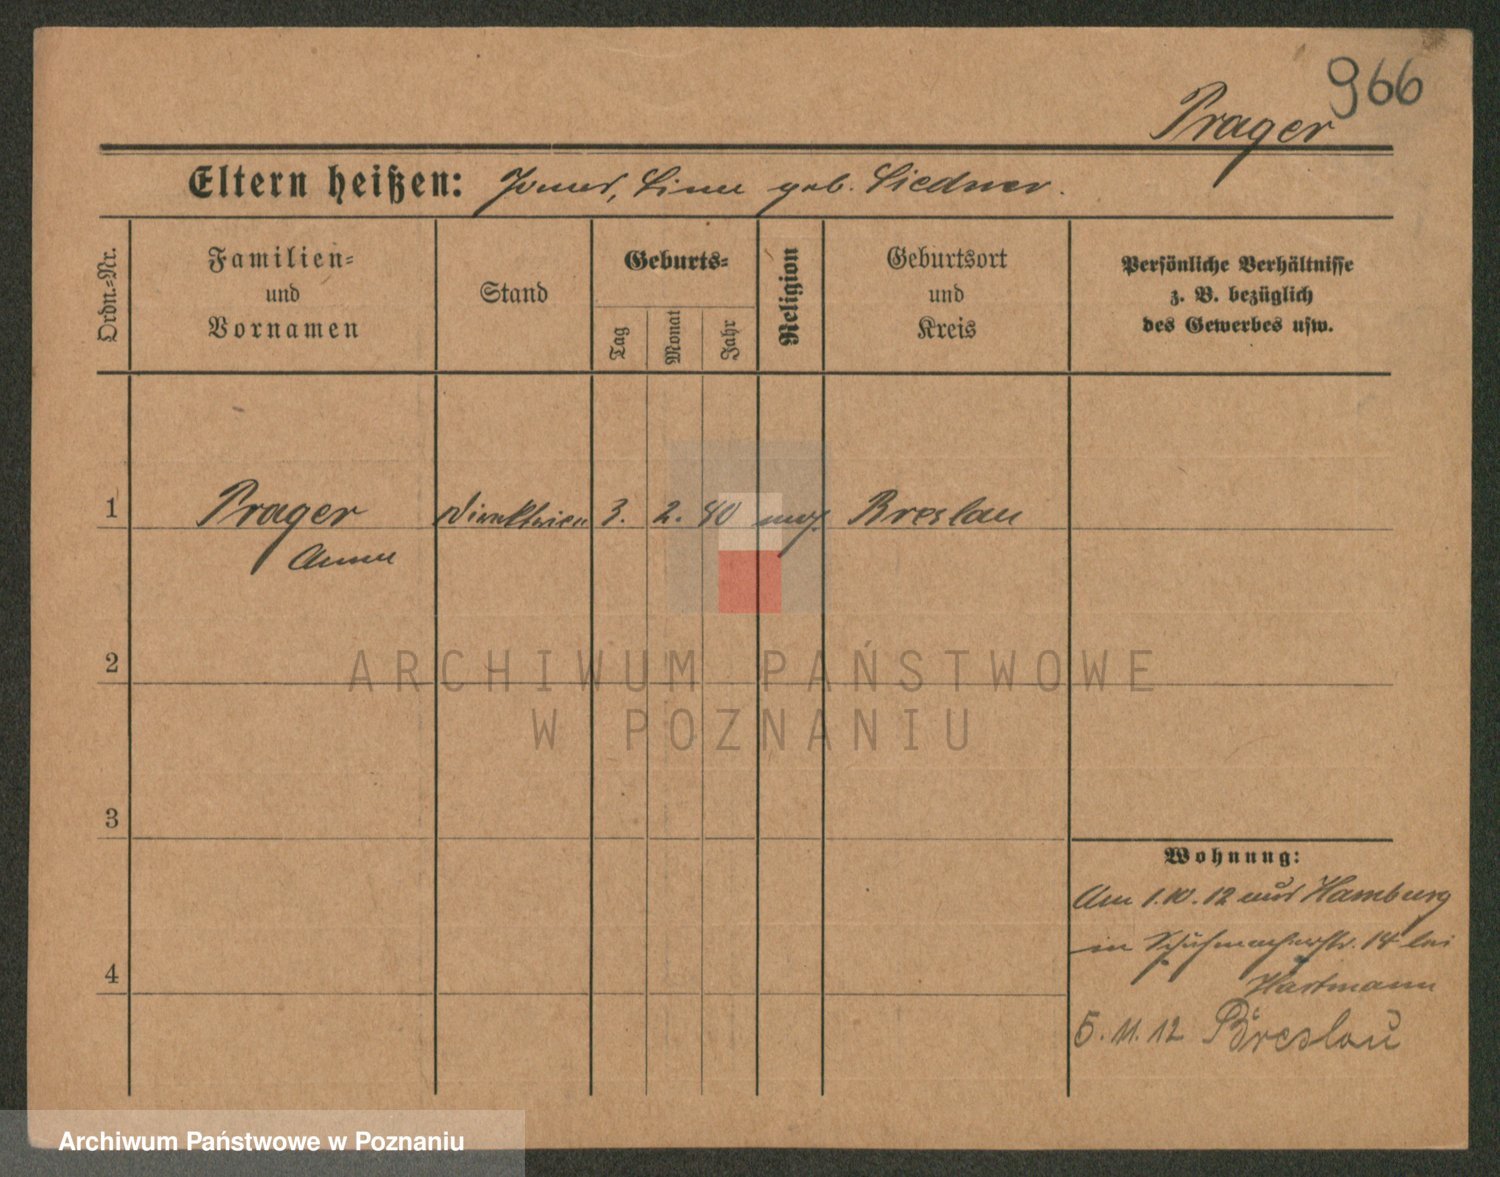 966
Prager
Eltern heißen: geb. Liedner.
Ordn.-Nr.
Familien-
und
Vornamen
Stand
Geburts-
Tag
Monat
Jahr
Religion
Geburtsort
und
Kreis
Persönliche Verhältnisse
z. B. bezüglich
des Gewerbes usw.
1 Prager 3. 2. Breslau
Anna
2
3
4
Wohnung:
Am 1.10.12 aus Hamburg
in Schuhmacherstr. 14 bei
Hartmann
5.11.12 Breslau
ARCHIWUM PAŃSTWOWE
W POZNANIU
Archiwum Państwowe w Poznaniu